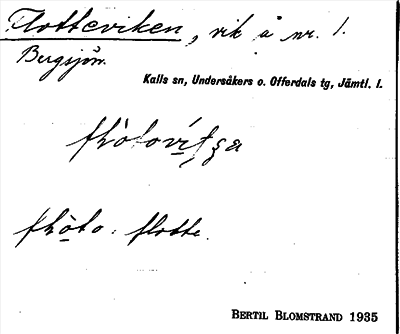 Flotteviken, vik å nr. 1.
Bergsjön.
Kalls sn, Undersåkers o. Offerdals tg, Jämtl. l.
flòtovitja
flòto: flotte.
BERTIL BLOMSTRAND 1935